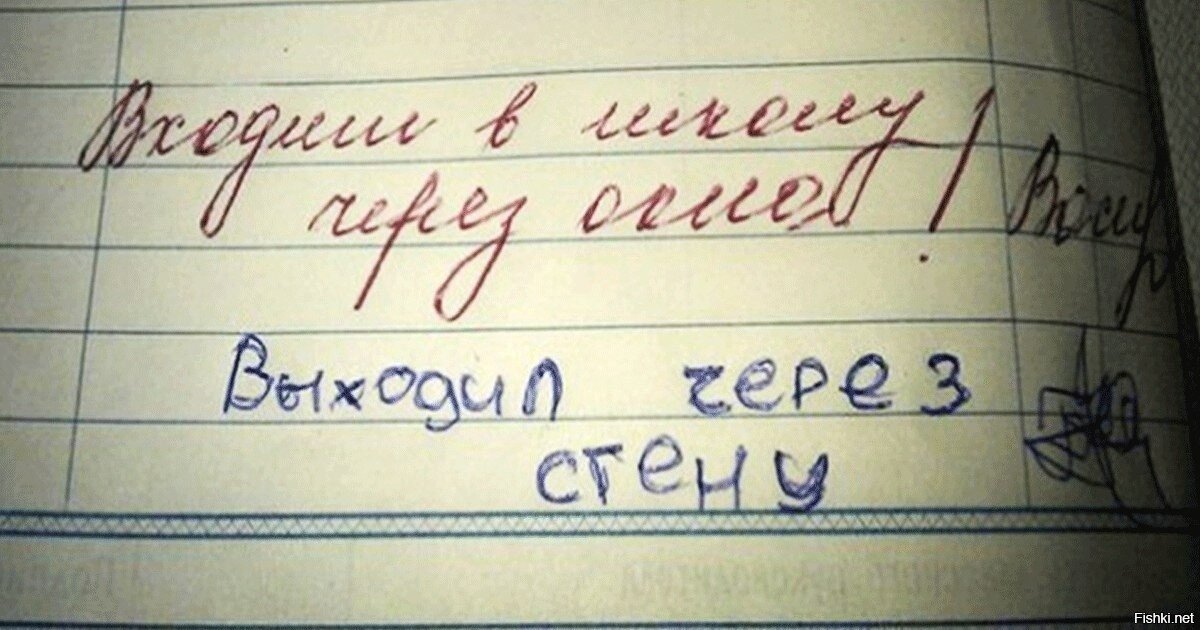 Входит в школу
через окно!
Выходил через
стену
Fishki.net